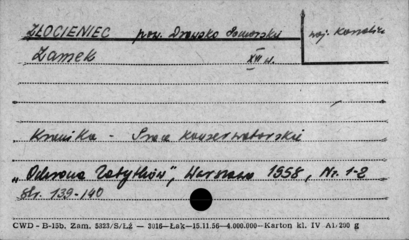 ZŁOCIENIEC pow. Drawsko Pomorskie woj. Koszalin
Zamek XIII w.
Kronika - Prace konserwatorskie
„Ochrona Zabytków”, Warszawa 1958, Nr. 1-2
str. 139-140
CWD - B-15b. Zam. 5323/S/Łż — 3016—Łak—15.11.56—4.000.000—Karton kl. IV A1/200 g